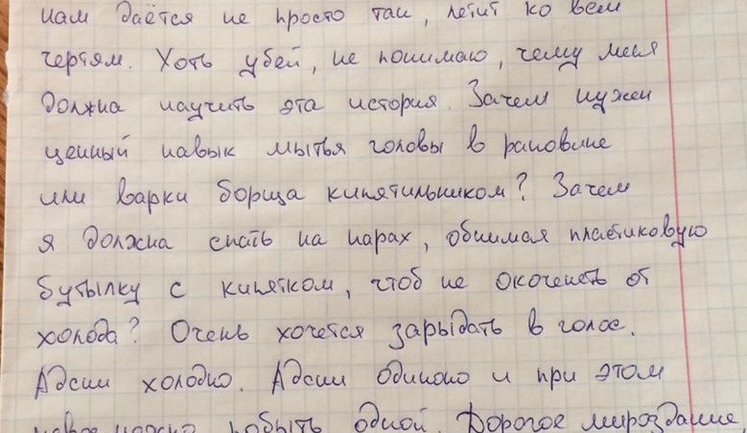 нам даётся не просто так, летит ко всем
чертям. Хоть убей, не понимаю, чему меня
должна научить эта история. Зачем нужен
ценный навык мытья головы в раковине
или варки борща кипятильником? Зачем
я должна спать на нарах, обнимая пластиковую
бутылку с кипятком, чтоб не окоченеть от
холода? Очень хочется зарыдать в голос.
Адски холодно. Адски одиноко и при этом
побыть одной. Дорогое мироздание,